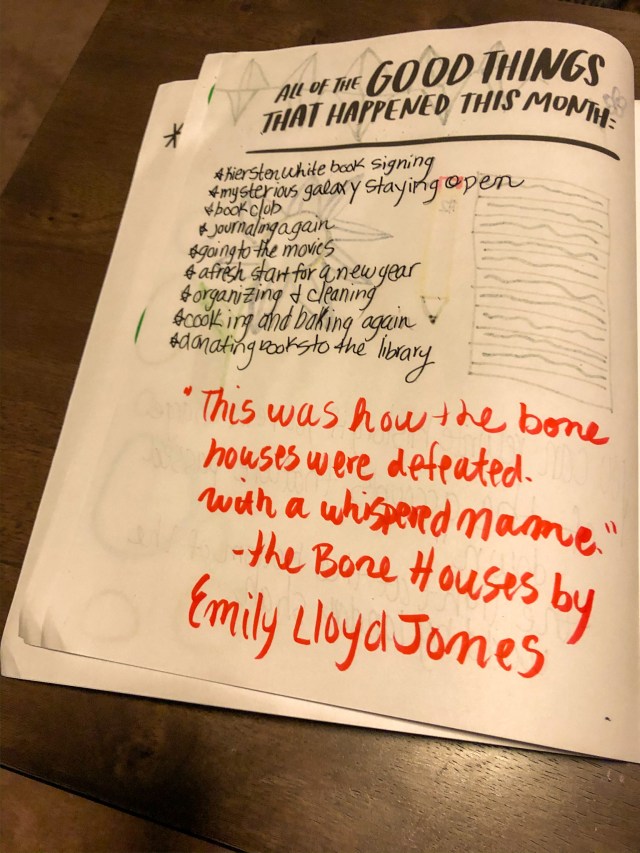 ALL OF THE GOOD THINGS
THAT HAPPENED THIS MONTH:
*
*kiersten white book signing
*mysterious galaxy staying open
*book club
*journaling again
*going to the movies
*a fresh start for a new year
*organizing & cleaning
*cooking and baking again
*donating books to the library
"This was how the bone
houses were defeated.
with a whispered name."
-the Bone Houses by
Emily Lloyd Jones